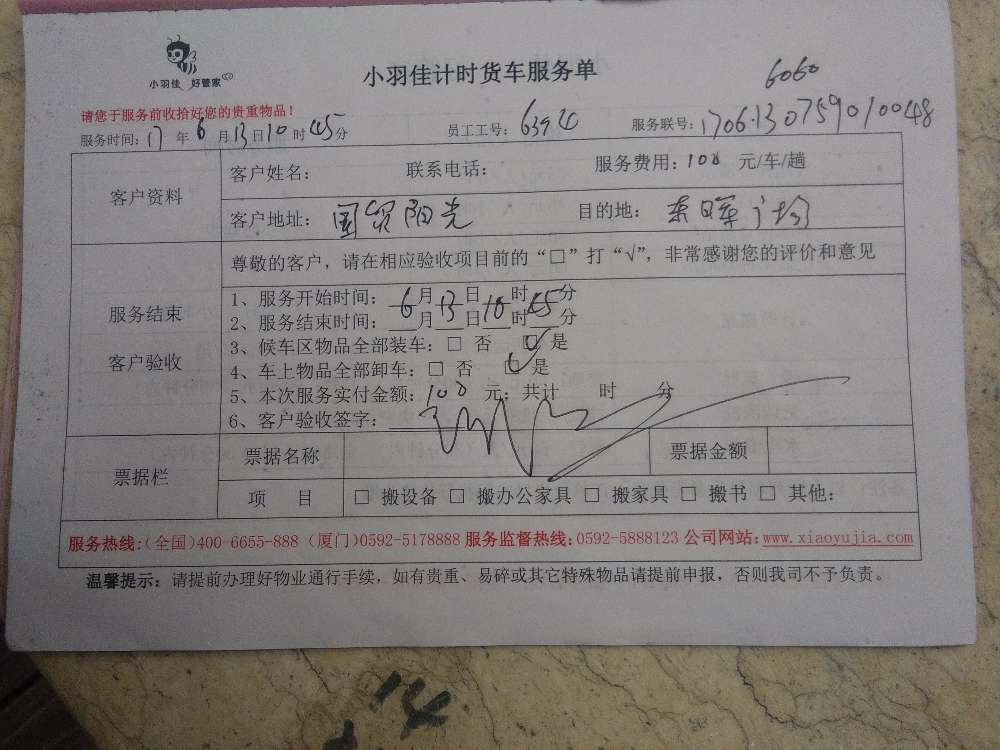 小羽佳 好管家
小羽佳计时货车服务单
6060
请您于服务前收拾好您的贵重物品！
服务时间：17年6月13日10时45分 员工工号：6394 服务联号：170613075901 0048
客户资料
客户姓名： 联系电话： 服务费用：100 元/车/趟
客户地址：国贸阳光 目的地：东晖广场
服务结束
客户验收
尊敬的客户，请在相应验收项目前的“□”打“√”，非常感谢您的评价和意见
1、服务开始时间：6月13日10时45分
2、服务结束时间：___月___日___时___分
3、候车区物品全部装车：□ 否 ☑ 是
4、车上物品全部卸车：□ 否 ☑ 是
5、本次服务实付金额：100 元；共计 时 分
6、客户验收签字：
票据栏
票据名称 票据金额
项 目 □ 搬设备 □ 搬办公家具 □ 搬家具 □ 搬书 □ 其他：
服务热线：（全国）400-6655-888（厦门）0592-5178888 服务监督热线：0592-5888123 公司网站：www.xiaoyujia.com
温馨提示：请提前办理好物业通行手续，如有贵重、易碎或其它特殊物品请提前申报，否则我司不予负责。